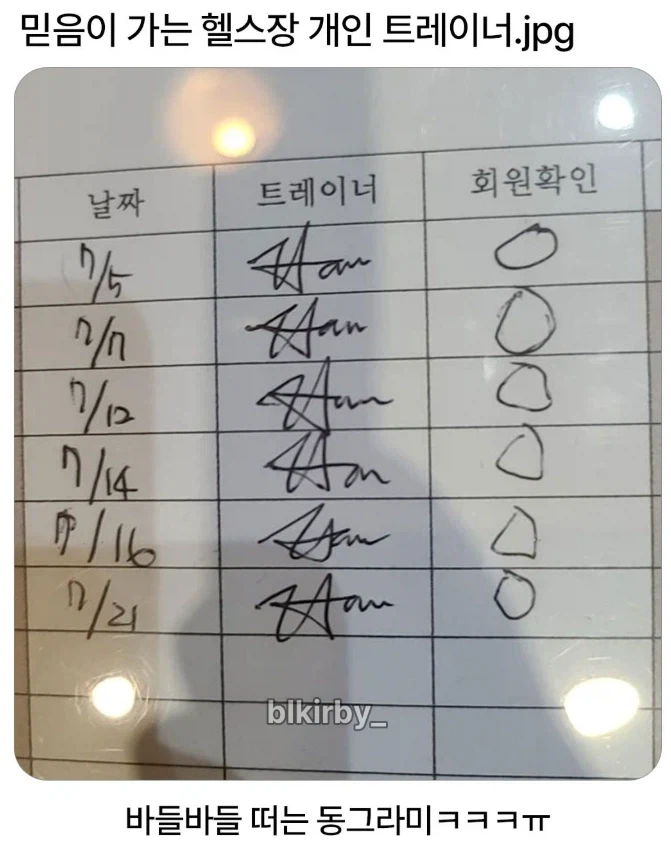 믿음이 가는 헬스장 개인 트레이너.jpg
날짜 트레이너 회원확인
7/5 Han
7/7 Han
7/12 Han
7/14 Han
7/16 Han
7/21 Han
blkirby_
바들바들 떠는 동그라미ㅋㅋㅋㅠ